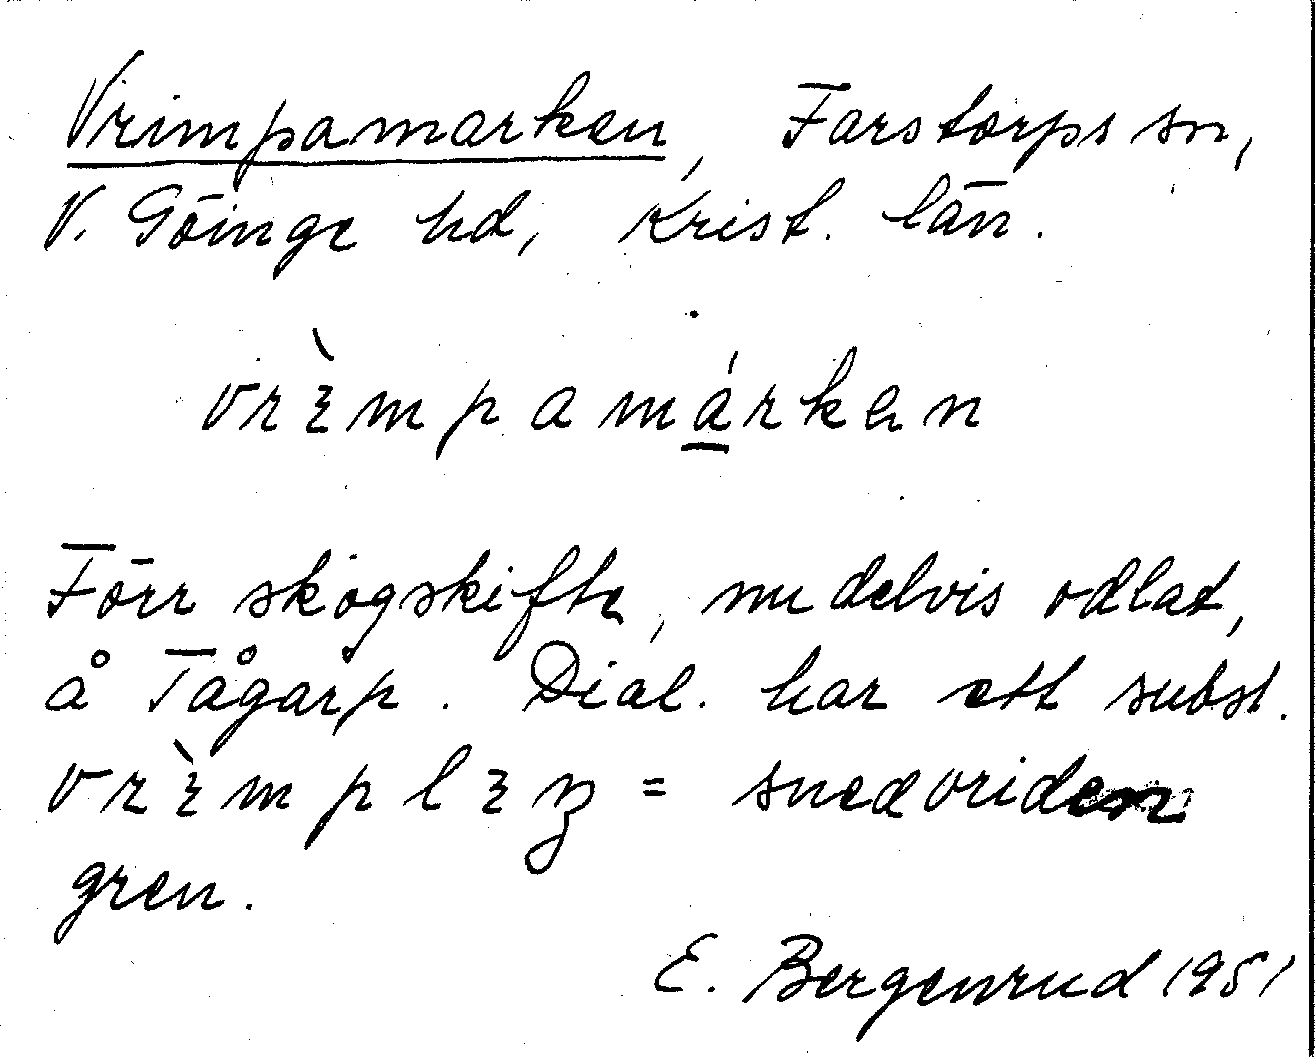 Vrimpamarken, Farstorps sn,
V. Göinge hd, Krist. län.
vrɜ̀mpamá̱rkən
Förr skogskifte, nu delvis odlat,
å Tågarp. Dial. har ett subst.
vrɜ̀mplɜŋ = snedvriden
gren.
E. Bergenrud 1951